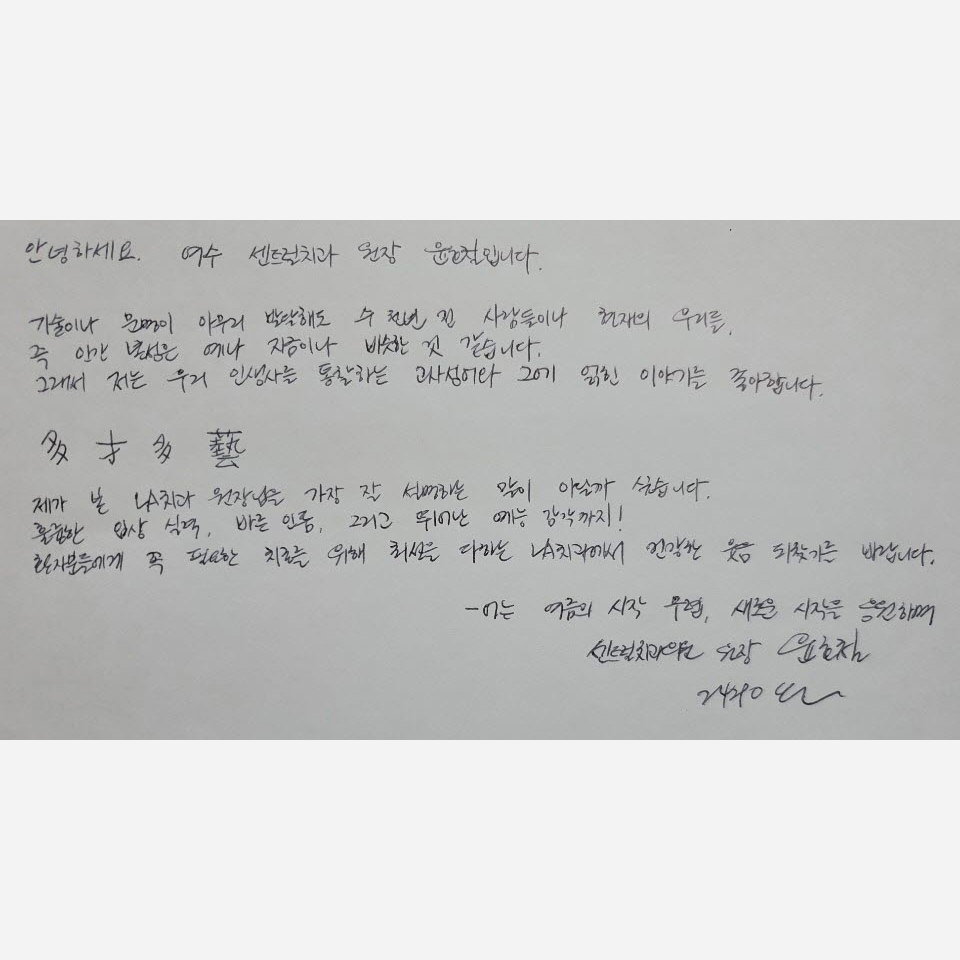 안녕하세요. 여수 센트럴치과 원장 윤호철입니다.
기술이나 문명이 아무리 발달해도 수 천년 전 사람들이나 현재의 우리를,
즉 인간 본성은 예나 지금이나 비슷한 것 같습니다.
그래서 저는 우리 인생사를 통찰하는 고사성어와 그에 얽힌 이야기를 좋아합니다.
多才多藝
제가 본 LA치과 원장님을 가장 잘 설명하는 말이 아닐까 싶습니다.
훌륭한 임상 실력, 바른 인품, 그리고 뛰어난 예능 감각까지!
환자분들에게 꼭 필요한 치료를 위해 최선을 다하는 LA치과에서 건강한 웃음 되찾기를 바랍니다.
- 어느 여름의 시작 무렵, 새로운 시작을 응원하며
센트럴치과의원 원장 윤호철